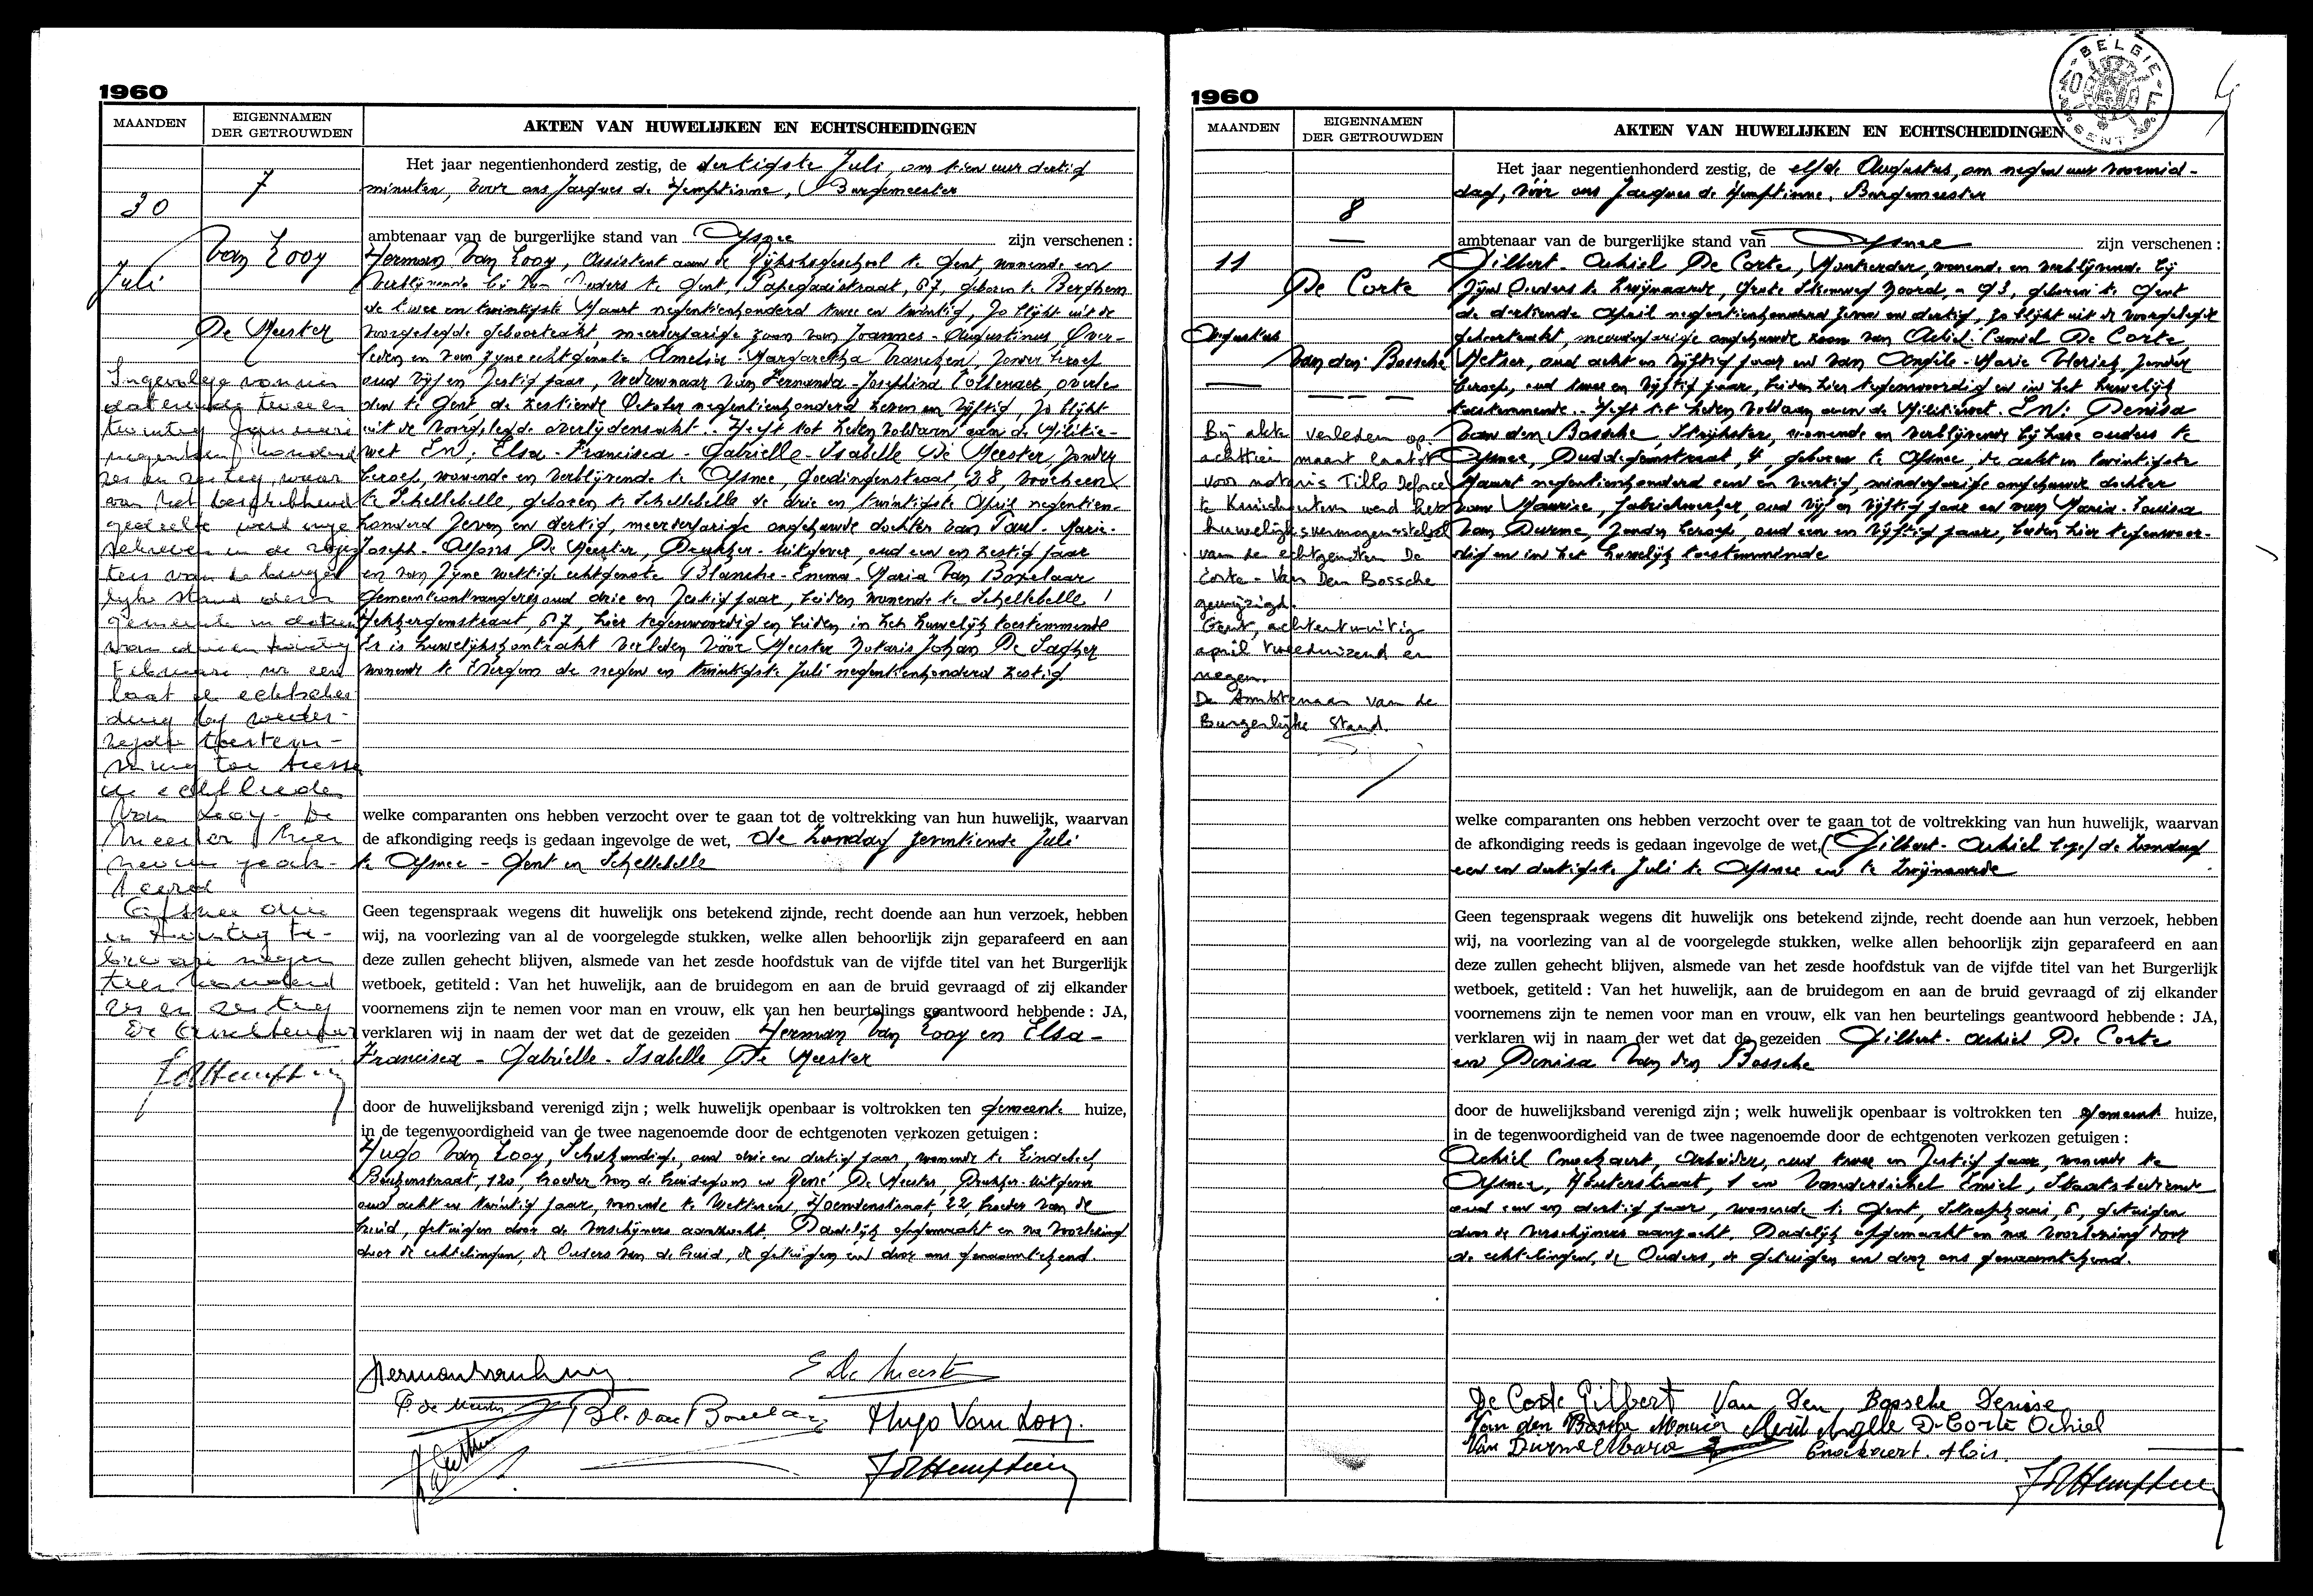 1960
MAANDEN
EIGENNAMEN
DER GETROUWDEN
AKTEN VAN HUWELIJKEN EN ECHTSCHEIDINGEN
30
Juli
7
Van Looy
De Meester
Het jaar negentienhonderd zestig, de dertigste Juli, om tien uur dertig
minuten, voor ons Jacques de Hemptinne, Burgemeester
ambtenaar van de burgerlijke stand van Afsnee zijn verschenen :
Herman Van Looy, Assistent aan de Rijkshogeschool te Gent, wonende en
verblijvende bij zijn Ouders te Gent, Papegaaistraat, 67, geboren te Berchem
de twee en twintigste Maart negentienhonderd twee en twintig, zo blijkt uit de
voorgelegde geboorteakt, meerderjarige zoon van Joannes-Augustinus, Over-
leden en van zijne echtgenote Amelia Margaretha Vranken, zonder beroep
oud vijf en zestig jaar, weduwnaar van Fernanda-Josephina Collenaer, overle
den te Gent de zestiende October negentienhonderd zeven en vijftig, zo blijkt
uit de voorgelegde overlijdensakt. Heeft tot heden voldaan aan de Militie-
wet En, Elsa-Francisca-Gabrielle-Isabelle De Meester, zonder
beroep, wonende en verblijvende te Afsnee, Goedingenstraat, 38, voorheen
te Schellebelle, geboren te Schellebelle de drie en twintigste April negentien-
honderd zeven en dertig, meerderjarige ongehuwde dochter van Paul-Marie-
Joseph-Alfons De Meester, Drukker-Uitgever, oud een en zestig jaar
en van zijne wettige echtgenote Blanche-Emma-Maria Van Boxelaer
gemeenteontvangeres oud drie en zestig jaar, beiden wonende te Schellebelle
67, hier tegenwoordig en beiden in het huwelijk toestemmende
Er is huwelijkskontrakt verleden vóór Meester Notaris Johan De Sagher
wonende te Evergem de negen en twintigste Juli negentienhonderd zestig
Ingevolge vonnis
daterende twee en
twintig Januari
negentien honderd
zes en zestig, waar
van het beschikkend
gedeelte werd inge
schreven in de regis
ters van de burger
lijke stand dezer
gemeente in datum
van drie en twintig
Februari
laat de echtschei
ding bij weder-
zijdse toestem-
ming toe tussen
de echtlieden
Van Looy - De
Meester hier
neven geak-
teerd
Afsnee drie
en twintig fe-
bruari negen
tien honderd
zes en zestig
De Ambtenaar
welke comparanten ons hebben verzocht over te gaan tot de voltrekking van hun huwelijk, waarvan
de afkondiging reeds is gedaan ingevolge de wet, de Zondag zeventiende Juli
te Afsnee - Gent en Schellebelle
Geen tegenspraak wegens dit huwelijk ons betekend zijnde, recht doende aan hun verzoek, hebben
wij, na voorlezing van al de voorgelegde stukken, welke allen behoorlijk zijn geparafeerd en aan
deze zullen gehecht blijven, alsmede van het zesde hoofdstuk van de vijfde titel van het Burgerlijk
wetboek, getiteld : Van het huwelijk, aan de bruidegom en aan de bruid gevraagd of zij elkander
voornemens zijn te nemen voor man en vrouw, elk van hen beurtelings geantwoord hebbende : JA,
verklaren wij in naam der wet dat de gezeiden Herman Van Looy en Elsa-
Francisca - Gabrielle - Isabelle De Meester
door de huwelijksband verenigd zijn ; welk huwelijk openbaar is voltrokken ten gemeente huize,
in de tegenwoordigheid van de twee nagenoemde door de echtgenoten verkozen getuigen :
Hugo Van Looy, Scheikundige, oud drie en dertig jaar, wonende te Linkebeek
Beukenstraat, 120, broeder van de bruidegom en René De Meester, Drukker-Uitgever
oud acht en twintig jaar, wonende te Wetteren, 22, broeder van de
bruid, getuigen door de verschijners aanzocht. Dadelijk opgemaakt en na voorlezing
door de echtelingen, de Ouders van de bruid, de getuigen en door ons genaamtekend.
E De Meester
P. de Meester
Bl. van Boxelaer
Hugo Van Looy.
JdHemptinne
1960
BELGIE
GENT
MAANDEN
EIGENNAMEN
DER GETROUWDEN
AKTEN VAN HUWELIJKEN EN ECHTSCHEIDINGEN
11
Augustus
8
De Corte
Van den Bossche
Het jaar negentienhonderd zestig, de elfde Augustus, om negen uur voormid-
dag, vóór ons Jacques de Hemptinne, Burgemeester
ambtenaar van de burgerlijke stand van Afsnee zijn verschenen :
Gilbert-Achiel De Corte, wonende en verblijvende bij
zijne Ouders te Zwijnaarde, Grote Steenweg Noord, 93, geboren te Gent
de dertiende April negentienhonderd zeven en dertig, zo blijkt uit de voorgelegde
geboorteakt, meerderjarige ongehuwde zoon van Achiel-Camiel De Corte,
Metser, oud acht en vijftig jaar en van Angèle-Marie, zonder
beroep, oud twee en vijftig jaar, beiden hier tegenwoordig en in het huwelijk
toestemmende. Heeft tot heden voldaan aan de Militiewet. En, Denisa
Van den Bossche, Strijkster, wonende en verblijvende bij hare ouders te
Afsnee, Duddegemstraat, 4, geboren te Afsnee, de acht en twintigste
Maart negentienhonderd een en veertig, minderjarige ongehuwde dochter
van Maurice, fabriekwerker, oud vijf en vijftig jaar en van Maria-Louisa
Van Durme, zonder beroep, oud een en vijftig jaar, beiden hier tegenwoor-
dig en in het huwelijk toestemmende
Bij akte verleden op
achttien maart laatst
voor notaris Tillo Deforce
te Kruishoutem werd het
huwelijksvermogensstelsel
van de echtgenoten De
Corte - Van Den Bossche
gewijzigd.
Gent, achtentwintig
april tweeduizend en
negen.
De Ambtenaar van de
Burgerlijke Stand.
welke comparanten ons hebben verzocht over te gaan tot de voltrekking van hun huwelijk, waarvan
de afkondiging reeds is gedaan ingevolge de wet, (Gilbert-Achiel de Zondag
een en dertigste Juli te Afsnee en te Zwijnaarde
Geen tegenspraak wegens dit huwelijk ons betekend zijnde, recht doende aan hun verzoek, hebben
wij, na voorlezing van al de voorgelegde stukken, welke allen behoorlijk zijn geparafeerd en aan
deze zullen gehecht blijven, alsmede van het zesde hoofdstuk van de vijfde titel van het Burgerlijk
wetboek, getiteld : Van het huwelijk, aan de bruidegom en aan de bruid gevraagd of zij elkander
voornemens zijn te nemen voor man en vrouw, elk van hen beurtelings geantwoord hebbende : JA,
verklaren wij in naam der wet dat de gezeiden Gilbert-Achiel De Corte
en Denisa Van den Bossche
door de huwelijksband verenigd zijn ; welk huwelijk openbaar is voltrokken ten gemeente huize,
in de tegenwoordigheid van de twee nagenoemde door de echtgenoten verkozen getuigen :
Achiel, Arbeider, oud twee en zestig jaar, wonende te
Afsnee, Houterstraat, 1 en Emiel, Staatsbediende
oud een en dertig jaar, wonende te Gent, 6, getuigen
door de verschijners aanzocht. Dadelijk opgemaakt en na voorlezing door
de echtelingen, de Ouders, de getuigen en door ons genaamtekend.
De Corte Gilbert Van Den Bossche Denise
Van den Bossche De Corte Achiel
Van Durme Maria
JdHemptinne